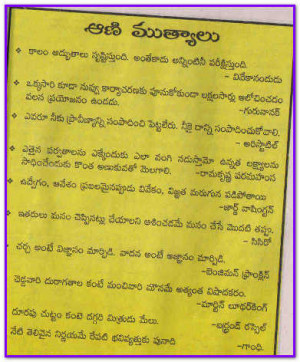 ఆణి ముత్యాలు
కాలం అద్భుతాలు సృష్టిస్తుంది. అంతేకాదు అన్నింటినీ పరీక్షిస్తుంది.
- వివేకానందుడు
ఒక్కసారి కూడా నువ్వు కార్యాచరణకు పూనుకోకుండా లక్షలసార్లు ఆలోచించడం
వలన ప్రయోజనం ఉండదు.
-గురునానక్
ఎవరూ నీకు ప్రావీణ్యాన్ని సంపాదించి పెట్టలేరు. నీకై దాన్ని సంపాదించుకోవాలి.
- అరిస్టాటిల్
ఎత్తైన పర్వతాలను ఎక్కేందుకు ఎలా వంగి నడుస్తామో ఉన్నత లక్ష్యాలను
సాధించేందుకు కొంత అణుకువతో మెలగాలి.
-రామకృష్ణ పరమహంస
ఉద్వేగం, ఆవేశం ప్రబలమైనప్పుడు వివేకం, విజ్ఞత మరుగున పడిపోతాయి
-జార్జ్ వాషింగ్టన్
ఇతరులు మనం చెప్పినట్లు చేయాలని ఆశించడమే మనం చేసే మొదటి తప్పు.
- సిసిరో
చర్చ అంటే విజ్ఞానం మార్పిడి. వాదన అంటే అజ్ఞానం మార్పిడి.
-బెంజిమన్ ఫ్రాంక్లిన్
చెడ్డవారి దురాగతాల కంటే మంచివారి మౌనమే అత్యంత విషాదకరం.
-మార్టిన్ లూథర్‌కింగ్
దూరపు చుట్టం కంటే దగ్గరి మిత్రుడు మేలు.
-బెర్ట్రండ్ రస్సెల్
నేటి తెలివైన నిర్ణయమే రేపటి భవిష్యత్తుకు పునాది
-గాంధీ.